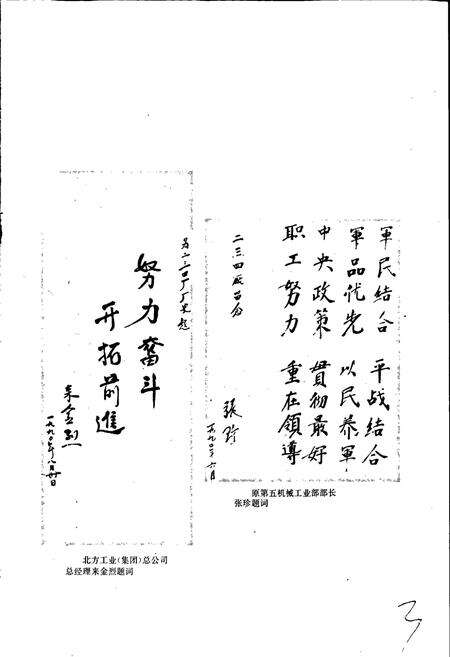 軍民结合 平战结合
軍品优先 以民养軍
中央政策 贯彻最好
职工努力 重在領導
二三四厰留念
張珍
一九九〇年六月
原第五机械工业部部长
张珍题词
努力奋斗
开拓前進
来金烈
一九九〇年八月廿日
北方工业(集团)总公司
总经理来金烈题词
3